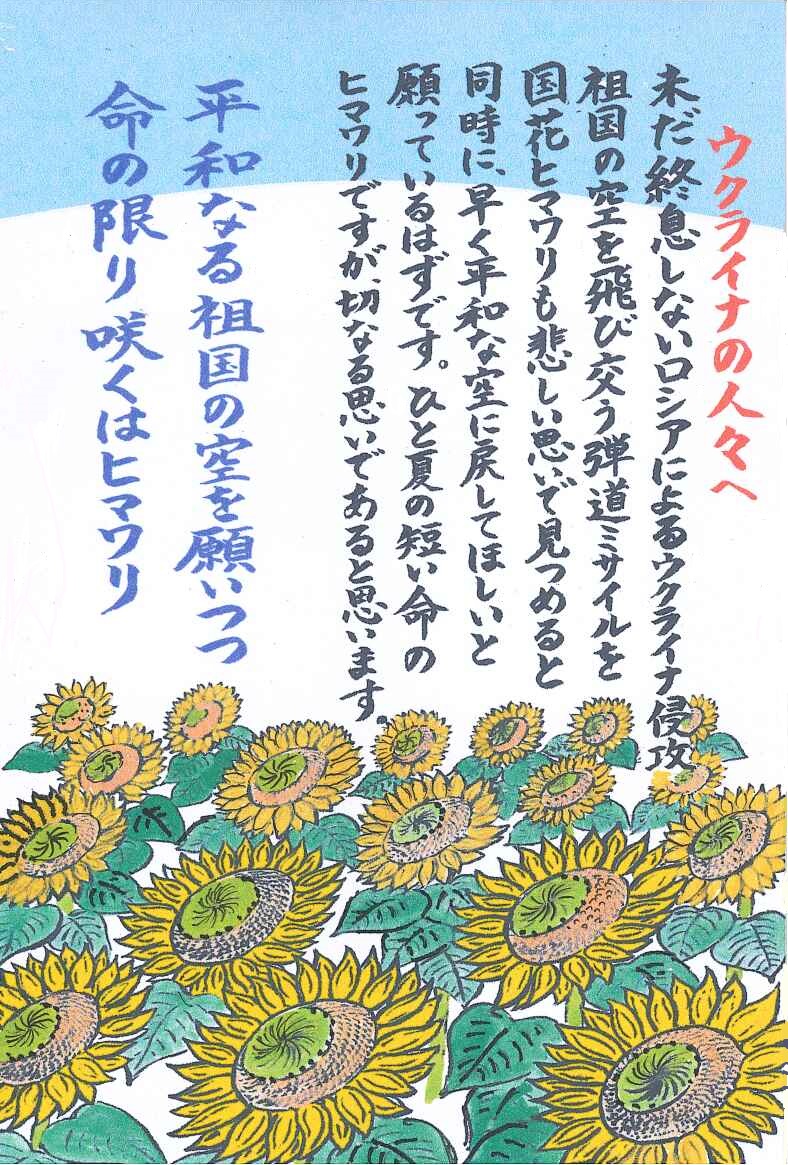 ウクライナの人々へ
未だ終息しないロシアによるウクライナ侵攻
祖国の空を飛び交う弾道ミサイルを
国花ヒマワリも悲しい思いで見つめると
同時に、早く平和な空に戻してほしいと
願っているはずです。ひと夏の短い命の
ヒマワリですが、切なる思いであると思います。
平和なる祖国の空を願いつつ
命の限り咲くはヒマワリ